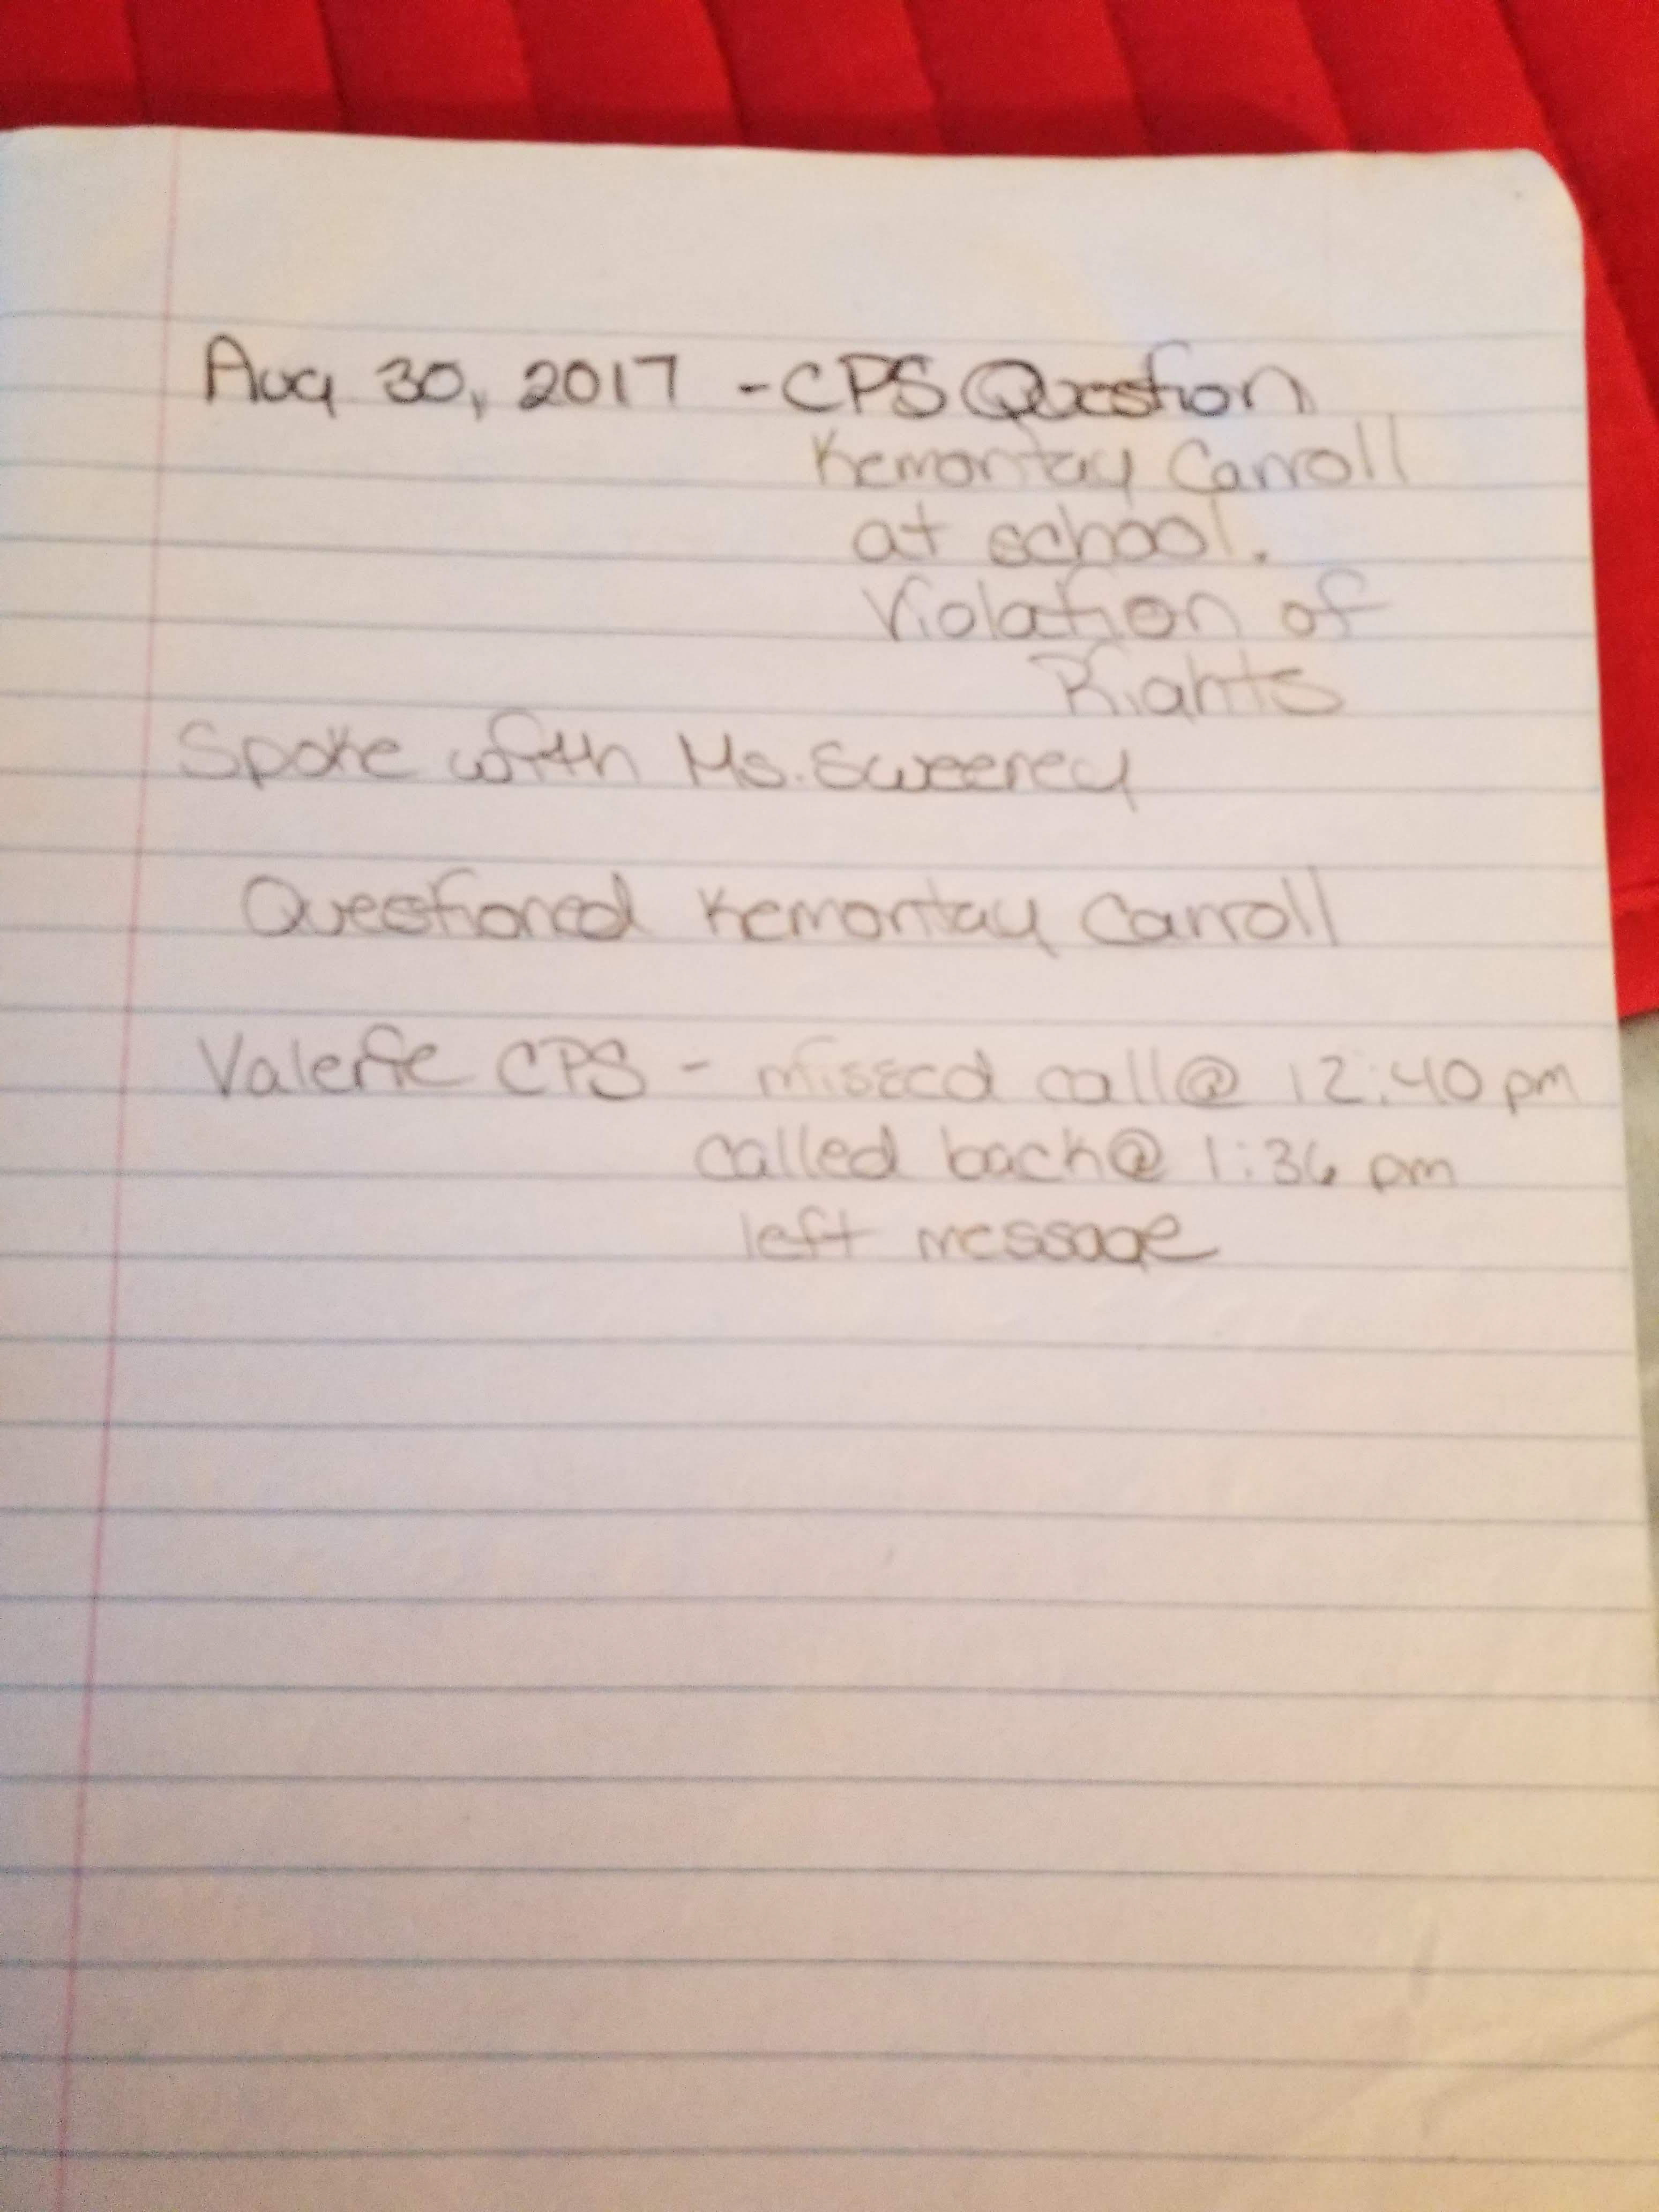 Aug 30, 2017 - CPS Question
Kemontay Carroll
at school.
Violation of
Rights
Spoke with Ms. Sweeney
Questioned Kemontay Carroll
Valerie CPS - missed call @ 12:40 pm
called back @ 1:36 pm
left message